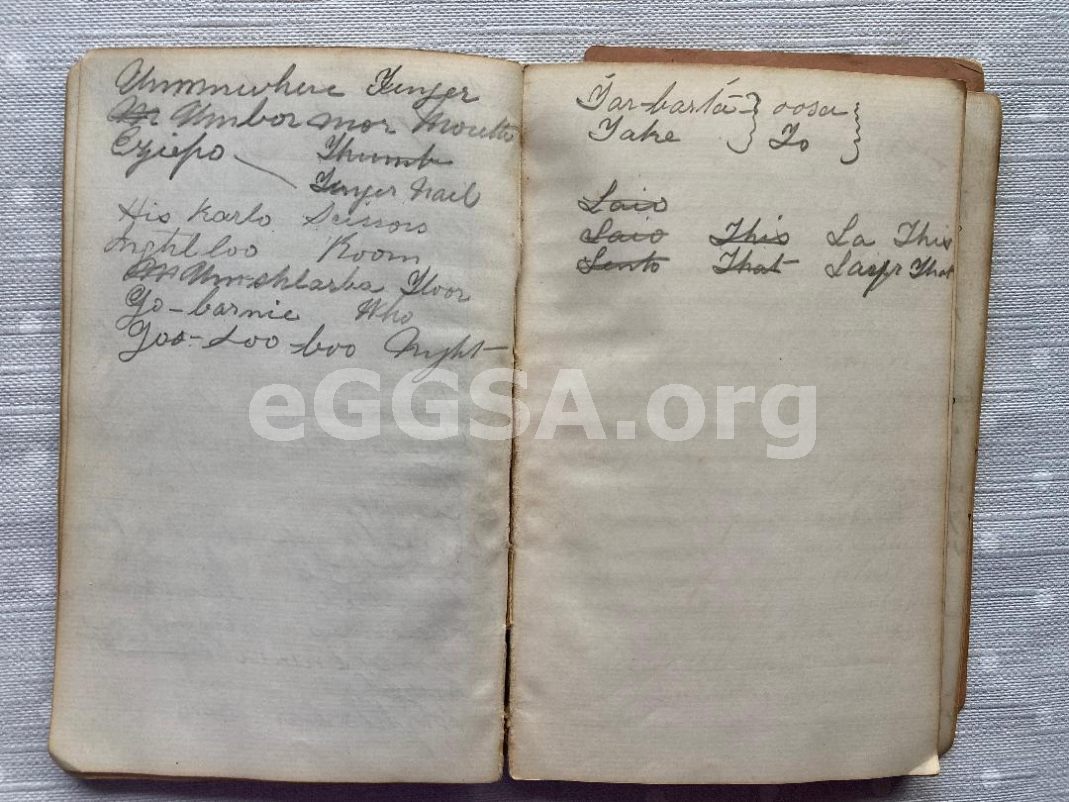 Ummnwhere Finger
Umbor mor Mouth
Eziepo Thumb
Finger Nail
His Karlo Scissors
Inghlloo Room
Um-shlarba Floor
Yo-barnie Who
Yoo-soo-boo Night
Tar-barta } oosa }
Take } To }
Laio
Laio This La This
Lento That Layr That
eGGSA.org